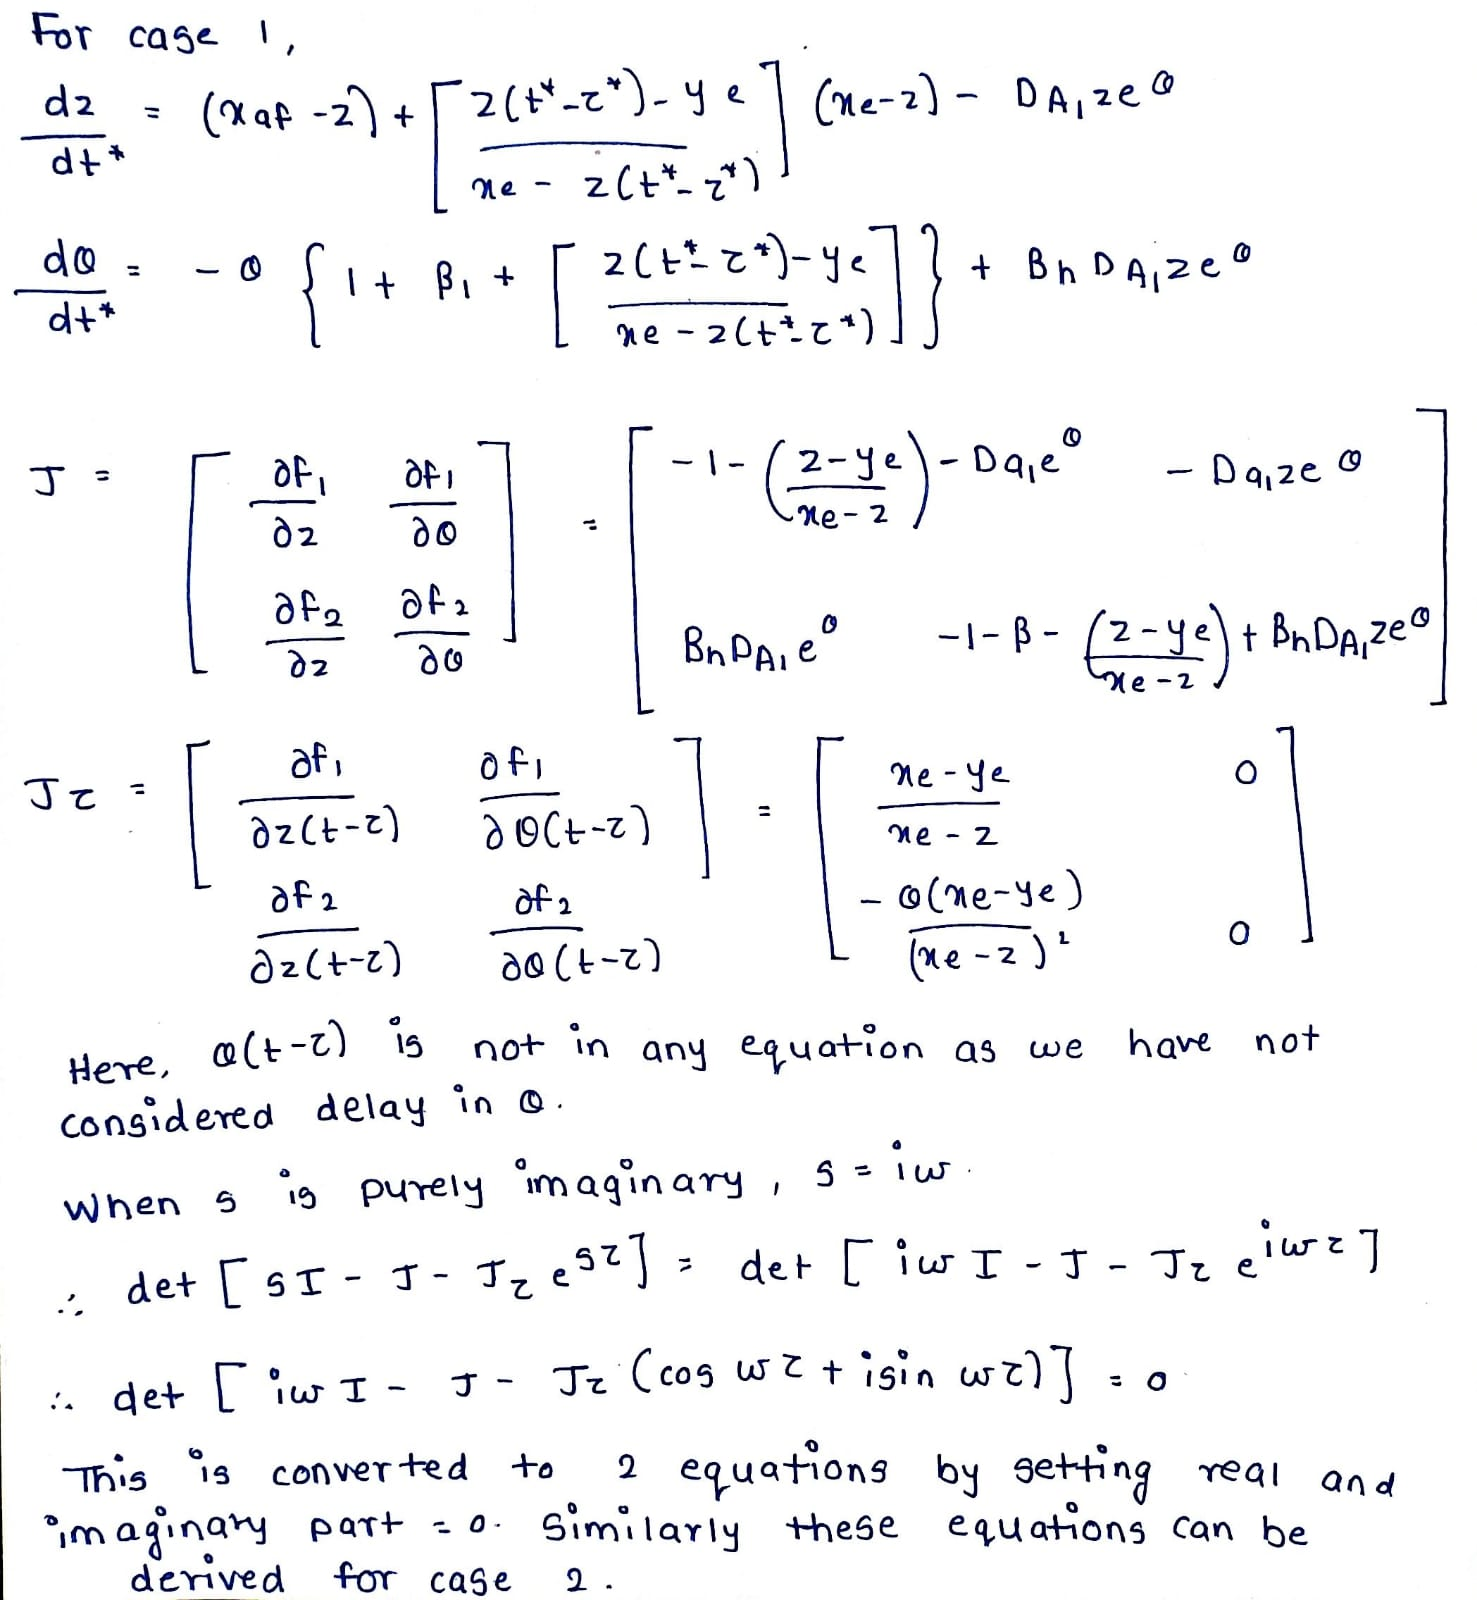 For case 1,
dz/dt* = (xaf - z) + [z(t*-τ*) - ye / xe - z(t*-τ*)] (xe-z) - DA1zeθ
dθ/dt* = -θ {1 + β1 + [z(t*-τ*)-ye / xe - z(t*-τ*)]} + Bh DA1zeθ
J = [∂f1/∂z ∂f1/∂θ ; ∂f2/∂z ∂f2/∂θ] = [-1-(z-ye/xe-z)-Da1eθ - Da1zeθ ; BhDA1eθ -1-β-(z-ye/xe-z)+BhDA1zeθ]
Jτ = [∂f1/∂z(t-τ) ∂f1/∂θ(t-τ) ; ∂f2/∂z(t-τ) ∂f2/∂θ(t-τ)] = [xe-ye/xe-z 0 ; -θ(xe-ye)/(xe-z)² 0]
Here, θ(t-τ) is not in any equation as we have not
considered delay in θ.
When s is purely imaginary, s = iw.
∴ det [sI - J - Jτ e^sτ] = det [iwI - J - Jτ e^iwτ]
∴ det [iwI - J - Jτ (cos wτ + isin wτ)] = 0
This is converted to 2 equations by setting real and
imaginary part = 0. Similarly these equations can be
derived for case 2.